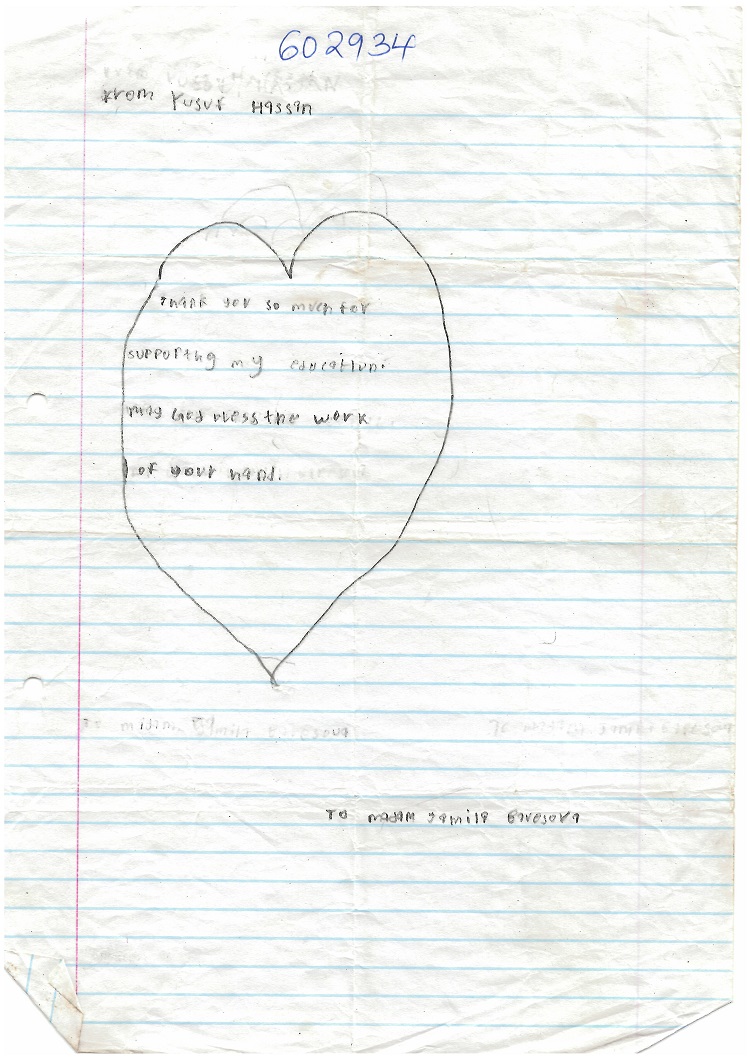 602934
From Yusuf Hassan
Thank you so much for
supporting my education.
may God bless the work
of your hand.
To madam Jamila